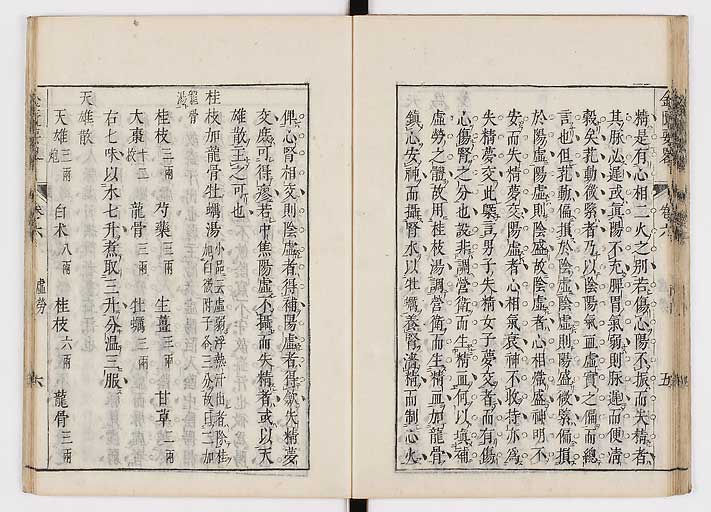 精是有心相二火之別若傷心陽不振而失精者
其脉必遲或眞陽不充脾胃氣弱則脉遲而便清
穀矣芤動微緊者乃以陰陽氣血虛實之偏而總
言也但芤動偏損於陰虛陰虛則陽盛微緊偏損
於陽虛陽虛則陰盛故陰虛者心相熾盛神明不
安而失精夢交陽虛者心相氣衰神不收持亦爲
失精夢交此槩言男子失精女子夢交者而有傷
心傷腎之分也設非調營衛而生精血何以塡補
虛勞之體故用桂枝湯調營衛而生精血加龍骨
鎭心安神而攝腎水以牡蠣養腎濇精而制心火
俾心腎相交則陰虛者得補陽虛者得斂失精夢
交庶可得痊若中焦陽虛不攝而失精者或以天
雄散主之可也
桂枝加龍骨牡蠣湯 小品云虛弱浮熱汗出者除桂加白薇附子各三分故曰二加龍骨湯
桂枝三兩 芍藥三兩 生薑三兩 甘草二兩
大棗十二枚 龍骨三兩 牡蠣三兩
右七味以水七升煮取三升分溫三服
天雄散
天雄三兩炮 白朮八兩 桂枝六兩 龍骨三兩
卷六
五
卷六 虛勞
六